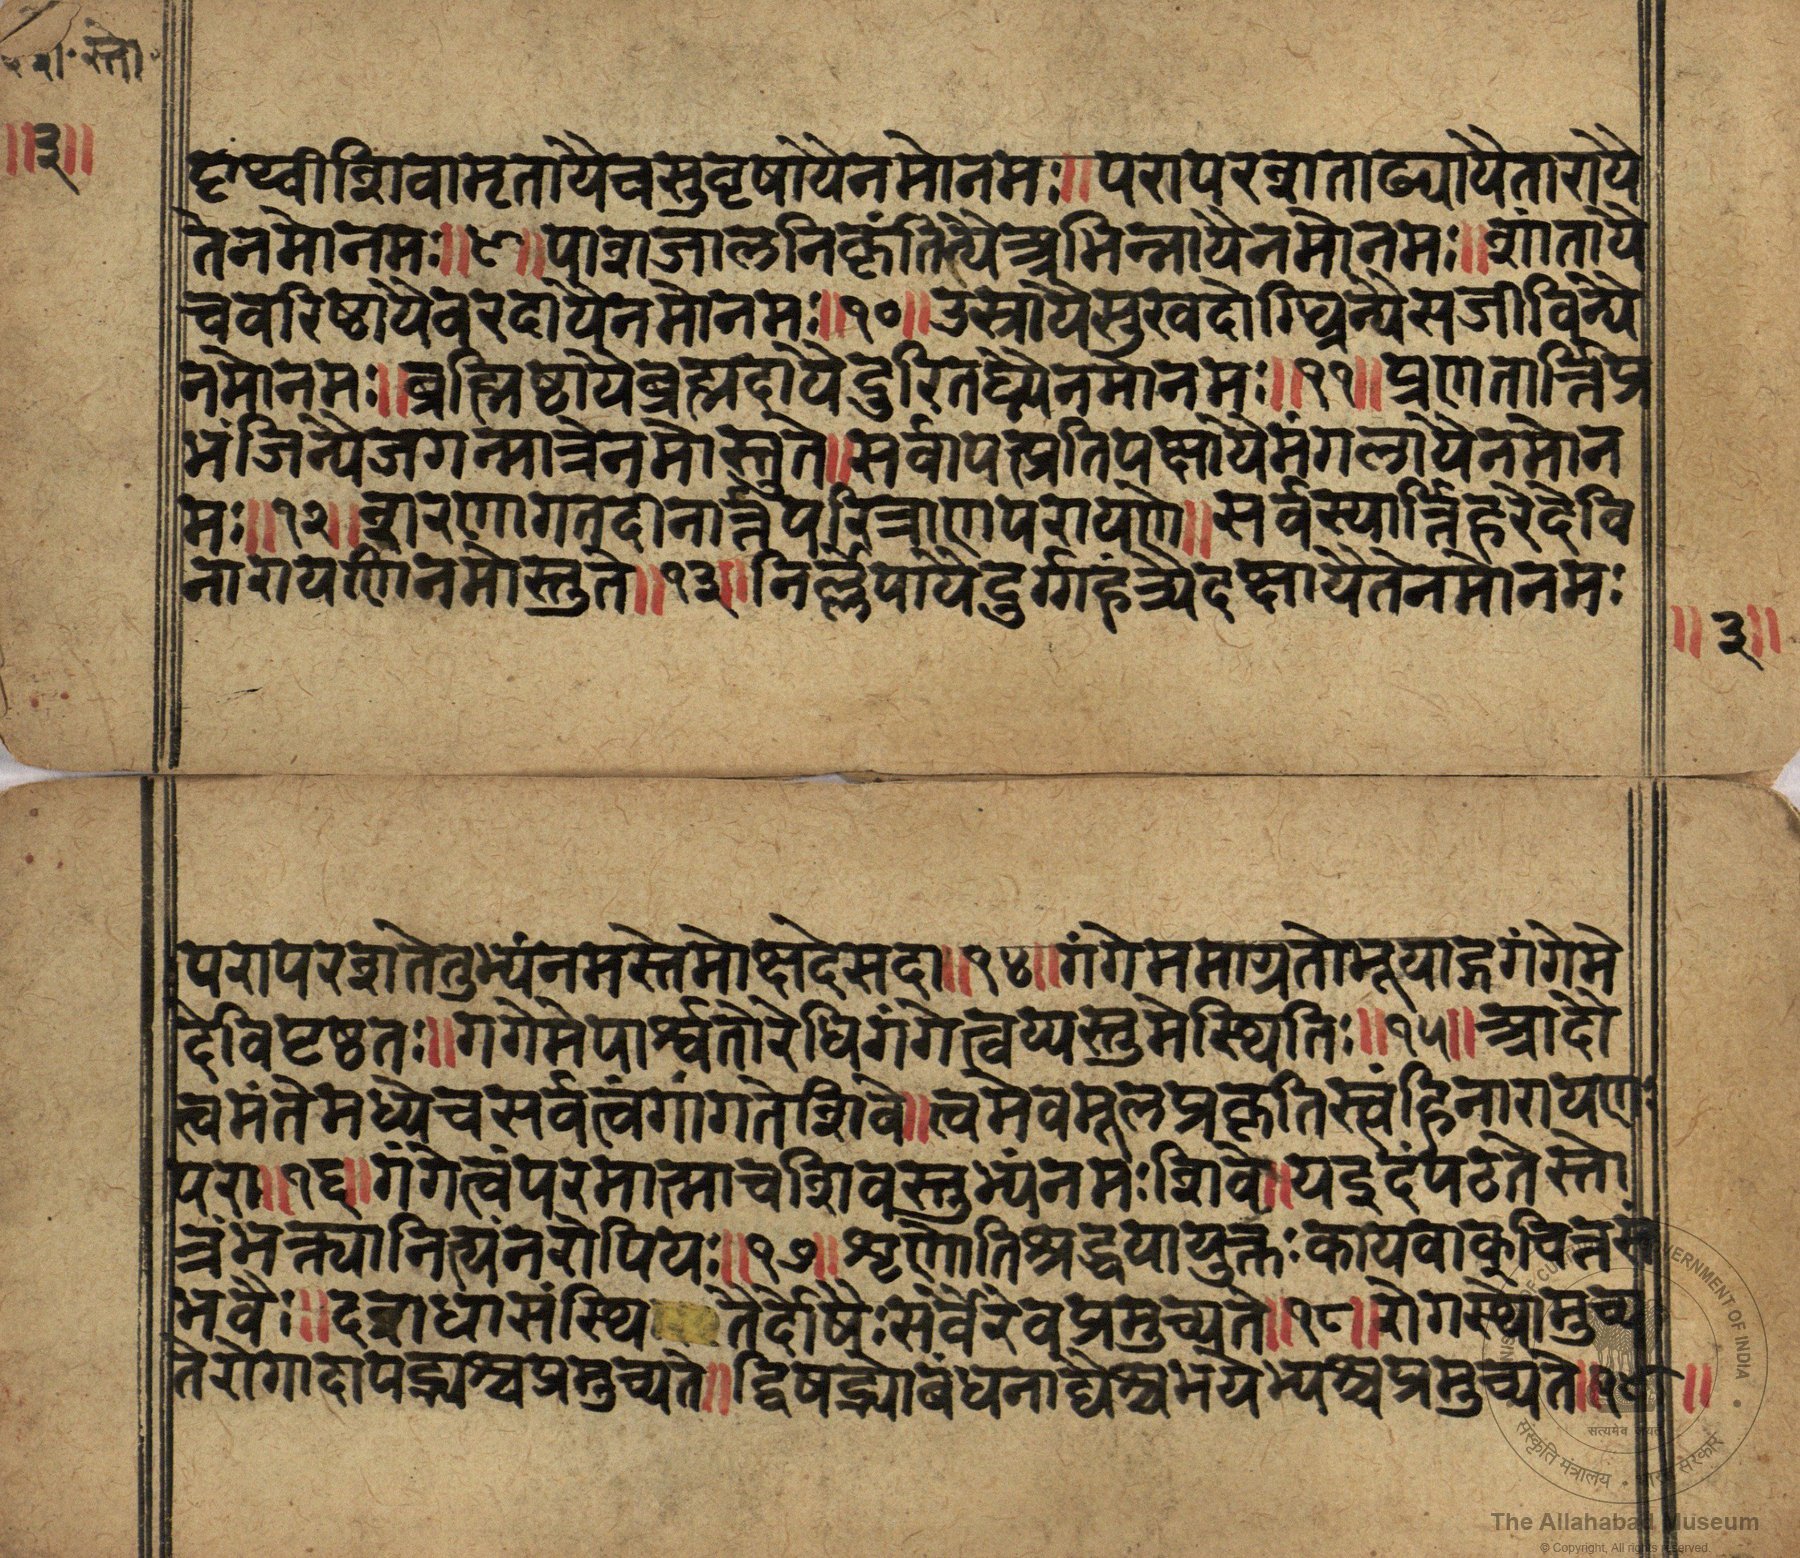 ॥३॥
पृथ्वीशिवामृतायैचसुवृषायैनमोनमः॥परापरशताढ्यायैतारायै
तेनमोनमः॥९॥पाशजालनिकृंतिन्यैअभिन्नायैनमोनमः॥शांतायै
चवरिष्ठायैवरदायैनमोनमः॥१०॥उस्रायैसुखदोग्ध्रिन्यैसजीविन्यै
नमोनमः॥ब्रह्मिष्ठायैब्रह्मदायैदुरितघ्न्यैनमोनमः॥११॥प्रणतार्त्तिप्र
भंजिन्यैजगन्मात्रेनमोस्तुते॥सर्वापत्प्रतिपक्षायैमंगलायैनमोन
मः॥१२॥शरणागतदीनार्त्तपरित्राणपरायणे॥सर्वस्यार्त्तिहरेदेवि
नारायणिनमोस्तुते॥१३॥निर्ल्लेपायैदुर्ग्गहंत्र्यैदक्षायैतेनमोनमः
॥३॥
परापरशतेतुभ्यंनमस्तेमोक्षदेसदा॥१४॥गंगेममाग्रतोभूयाद्गगंगेमे
देविपृष्ठतः॥गगेमेपार्श्वतोरेधिगंगेत्वय्यस्तुमेस्थितिः॥१५॥आदौ
त्वमंतेमध्येचसर्वत्वंगांगतेशिवे॥त्वमेवमूलप्रकृतिस्त्वंहिनारायणः
परा॥१६॥गंगेत्वंपरमात्माचशिवस्तुभ्यंनमःशिवे॥यइदंपठतेस्तो
त्रंभक्त्यानित्यंनरोपियः॥१७॥शृणोतिश्रद्धयायुक्तःकायवाक्चित्तसं
भवैः॥दशधासंस्थितैर्दोषैःसर्वैरेवप्रमुच्यते॥१८॥रोगस्थोमुच्य
तेरोगादापद्भ्यश्चप्रमुच्यते॥द्विषद्भ्योबंधनाद्यैश्चभयेभ्यश्चप्रमुच्यते॥१९॥
The Allahabad Museum
© Copyright, All rights reserved.